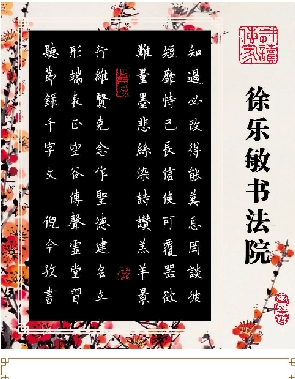 徐乐敏书法院
知過必改得能莫忘罔談彼
短靡恃己長信使可覆器欲
難量墨悲絲染詩讚羔羊景
行維賢克念作聖德建名立
形端表正空谷傳聲虛堂習
聽節錄千字文 書